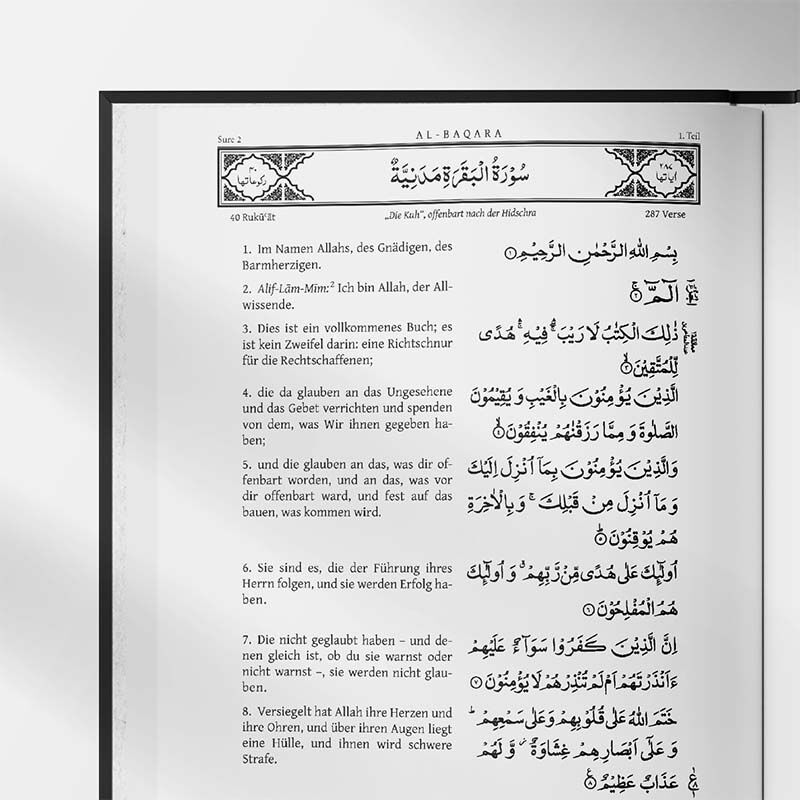 Sure 2
AL-BAQARA
1. Teil
۴۰
رکوعاتها
سُوْرَةُ الْبَقَرَةِ مَدَنِيَّةٌ
۲۸۷
اٰیاتها
40 Rukūʿāt
„Die Kuh“, offenbart nach der Hidschra
287 Verse
1. Im Namen Allahs, des Gnädigen, des
Barmherzigen.
2. Alif-Lām-Mīm:² Ich bin Allah, der All-
wissende.
3. Dies ist ein vollkommenes Buch; es
ist kein Zweifel darin: eine Richtschnur
für die Rechtschaffenen;
4. die da glauben an das Ungesehene
und das Gebet verrichten und spenden
von dem, was Wir ihnen gegeben ha-
ben;
5. und die glauben an das, was dir of-
fenbart worden, und an das, was vor
dir offenbart ward, und fest auf das
bauen, was kommen wird.
6. Sie sind es, die der Führung ihres
Herrn folgen, und sie werden Erfolg ha-
ben.
7. Die nicht geglaubt haben – und de-
nen gleich ist, ob du sie warnst oder
nicht warnst –, sie werden nicht glau-
ben.
8. Versiegelt hat Allah ihre Herzen und
ihre Ohren, und über ihren Augen liegt
eine Hülle, und ihnen wird schwere
Strafe.
بِسْمِ اللّٰهِ الرَّحْمٰنِ الرَّحِيْمِ ۱
الٓمّٓ ۚ ۲
ذٰلِكَ الْكِتٰبُ لَا رَيْبَ ۛۖ فِيْهِ ۛۚ هُدًى
لِّلْمُتَّقِيْنَ ۙ ۳
الَّذِيْنَ يُؤْمِنُوْنَ بِالْغَيْبِ وَ يُقِيْمُوْنَ
الصَّلٰوةَ وَ مِمَّا رَزَقْنٰهُمْ يُنْفِقُوْنَ ۙ ۴
وَالَّذِيْنَ يُؤْمِنُوْنَ بِمَاۤ اُنْزِلَ اِلَيْكَ
وَ مَاۤ اُنْزِلَ مِنْ قَبْلِكَ ۚ وَ بِالْاٰخِرَةِ
هُمْ يُوْقِنُوْنَ ؕ ۵
اُولٰٓئِكَ عَلٰى هُدًى مِّنْ رَّبِّهِمْ ۗ وَ اُولٰٓئِكَ
هُمُ الْمُفْلِحُوْنَ ۶
اِنَّ الَّذِيْنَ كَفَرُوْا سَوَآءٌ عَلَيْهِمْ
ءَاَنْذَرْتَهُمْ اَمْ لَمْ تُنْذِرْهُمْ لَا يُؤْمِنُوْنَ ۷
خَتَمَ اللّٰهُ عَلٰى قُلُوْبِهِمْ وَعَلٰى سَمْعِهِمْ ؕ
وَ عَلٰۤى اَبْصَارِهِمْ غِشَاوَةٌ ۫ وَّ لَهُمْ
عَذَابٌ عَظِيْمٌ ۸